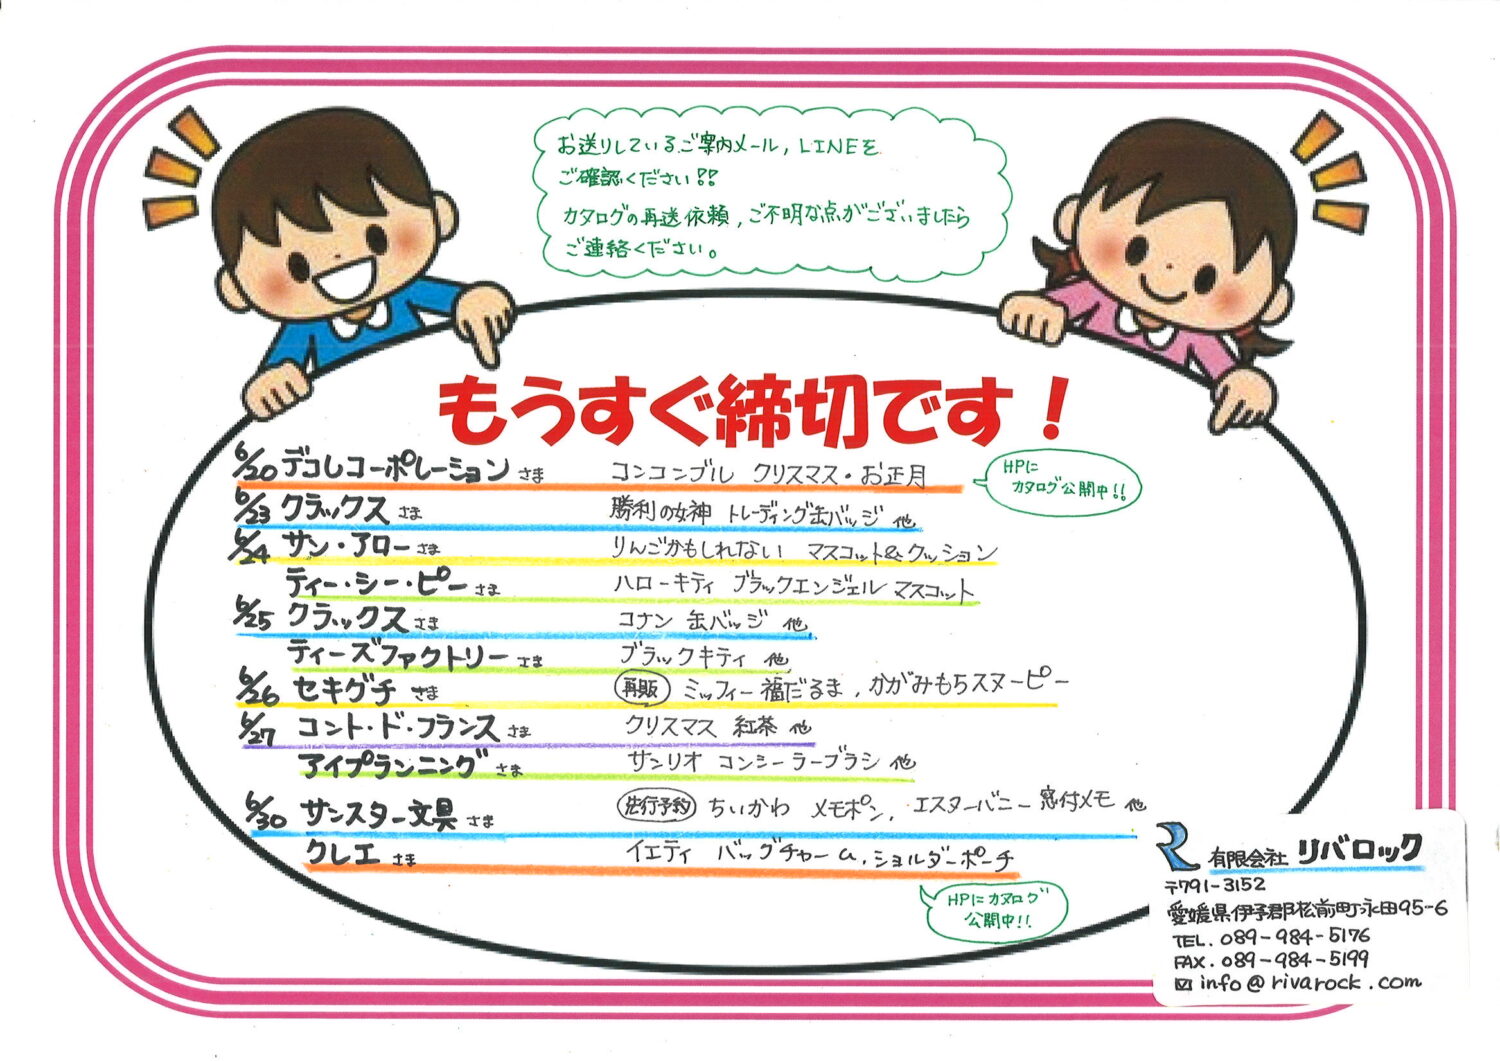 お送りしているご案内メール,LINEを
ご確認ください!!
カタログの再送依頼,ご不明な点がございましたら
ご連絡ください。
もうすぐ締切です!
6/20 デコレコーポレーション さま コンコンブル クリスマス・お正月
HPに
カタログ公開中!!
6/23 クラックス さま 勝利の女神 トレーディング缶バッジ 他
6/24 サン・アロー さま りんごかもしれない マスコット&クッション
ティー・シー・ピー さま ハローキティ ブラックエンジェル マスコット
6/25 クラックス さま コナン 缶バッジ 他
ティーズファクトリー さま ブラックキティ 他
6/26 セキグチ さま 再販 ミッフィー福だるま,かがみもちスヌーピー
6/27 コント・ド・フランス さま クリスマス 紅茶 他
アイプランニング さま サンリオ コンシーラーブラシ 他
6/30 サンスター文具 さま 先行予約 ちいかわ メモポン, エスターバニー 窓付メモ 他
クレエ さま イエティ バッグチャーム,ショルダーポーチ
HPにカタログ
公開中!!
有限会社 リバロック
〒791-3152
愛媛県伊予郡松前町永田95-6
TEL. 089-984-5176
FAX. 089-984-5199
info@rivarock.com